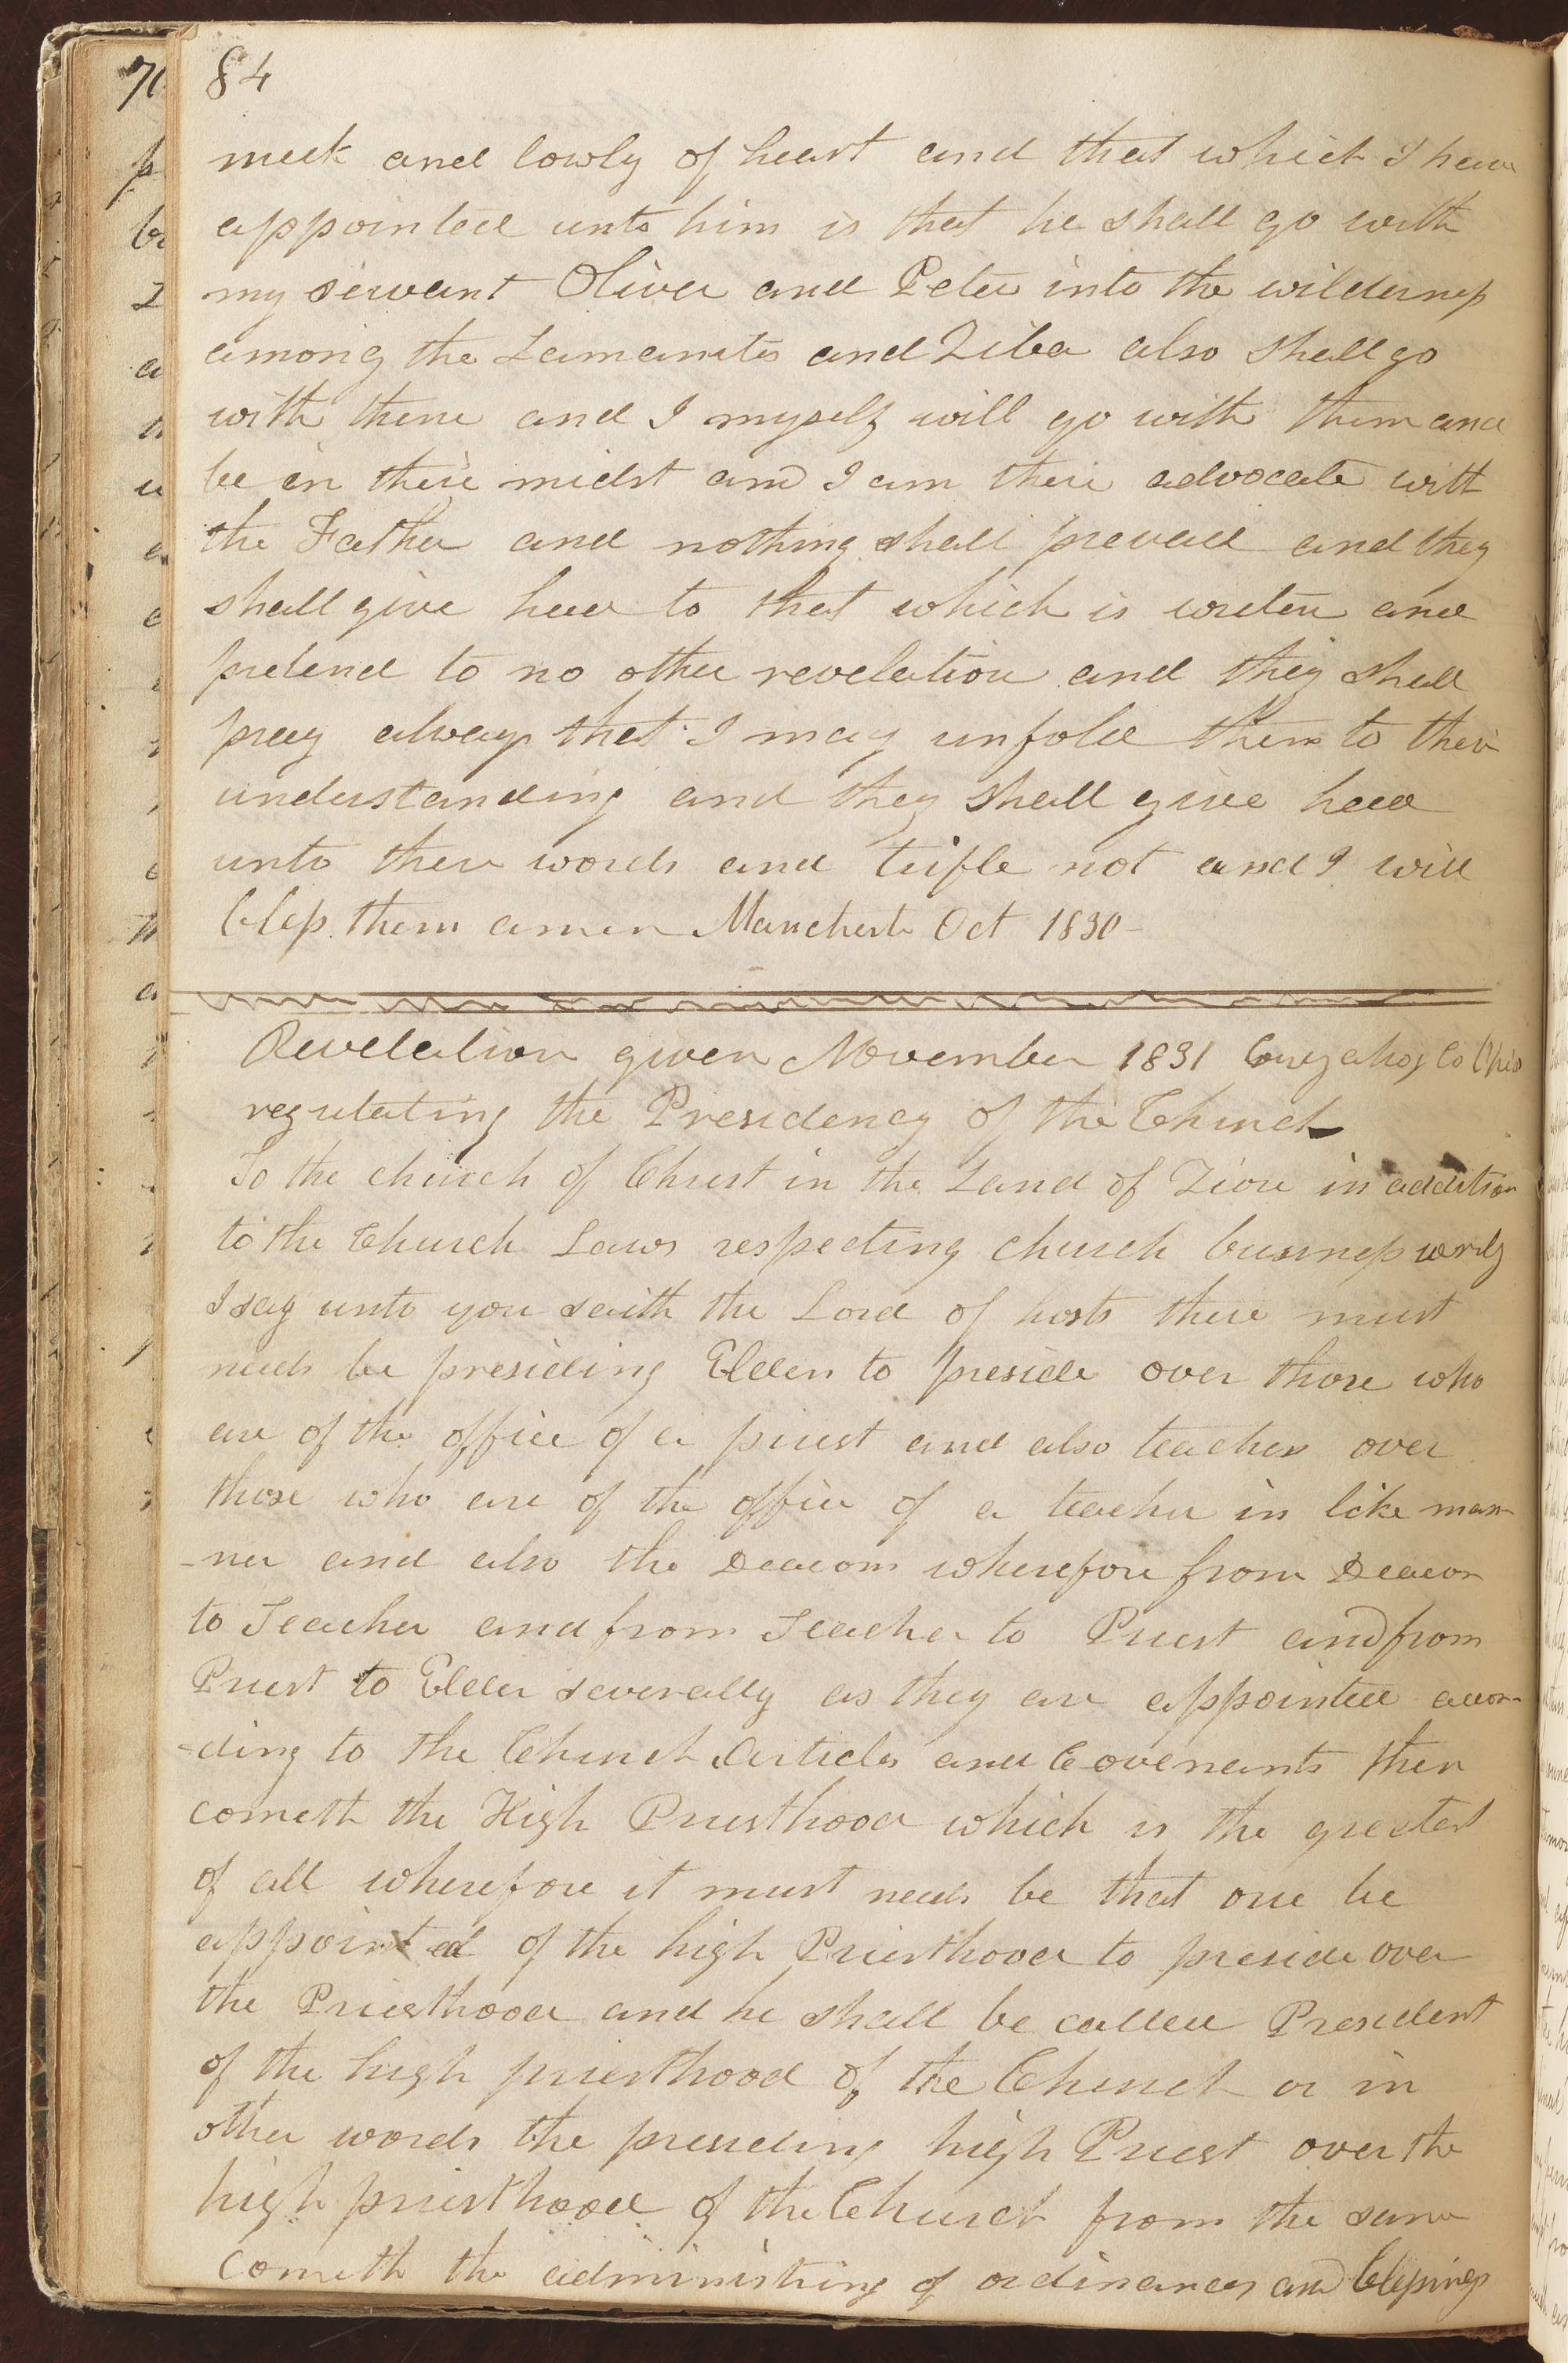 84
meek and lowly of heart and that which I have
appointed unto him is that he shall go with
my servant Oliver and Peter into the wilderness
among the Lamanites and Ziba also shall go
with them and I myself will go with them and
be in their midst and I am their advocate with
the Father and nothing shall prevail and they
shall give heed to that which is writen and
pretend to no other revelation and they shall
pray always that I may unfold them to their
understanding and they shall give heed
unto these words and trifle not and I will
bless them amen Manchester Oct 1830-
Revelation given November 1831 Cuyahog Co Ohio
regulating the Presidency of the Church
To the church of Christ in the Land of Zion in addition
to the Church Laws respecting church business verily
I say unto you saith the Lord of hosts there must
needs be presiding Elders to preside over those who
are of the office of a priest and also teachers over
those who are of the office of a teacher in like man-
-ner and also the Deacons wherefore from Deacon
to Teacher and from Teacher to Priest and from
Priest to Elder severally as they are appointed accor-
-ding to the Church Articles and Covenants then
cometh the High Priesthood which is the greatest
of all wherefore it must needs be that one be
appointed of the high Priesthood to preside over
the Priesthood and he shall be called President
of the high priesthood of the Church or in
other words the presiding high Priest over the
high priesthood of the Church from the same
cometh the administring of ordinances and blessings